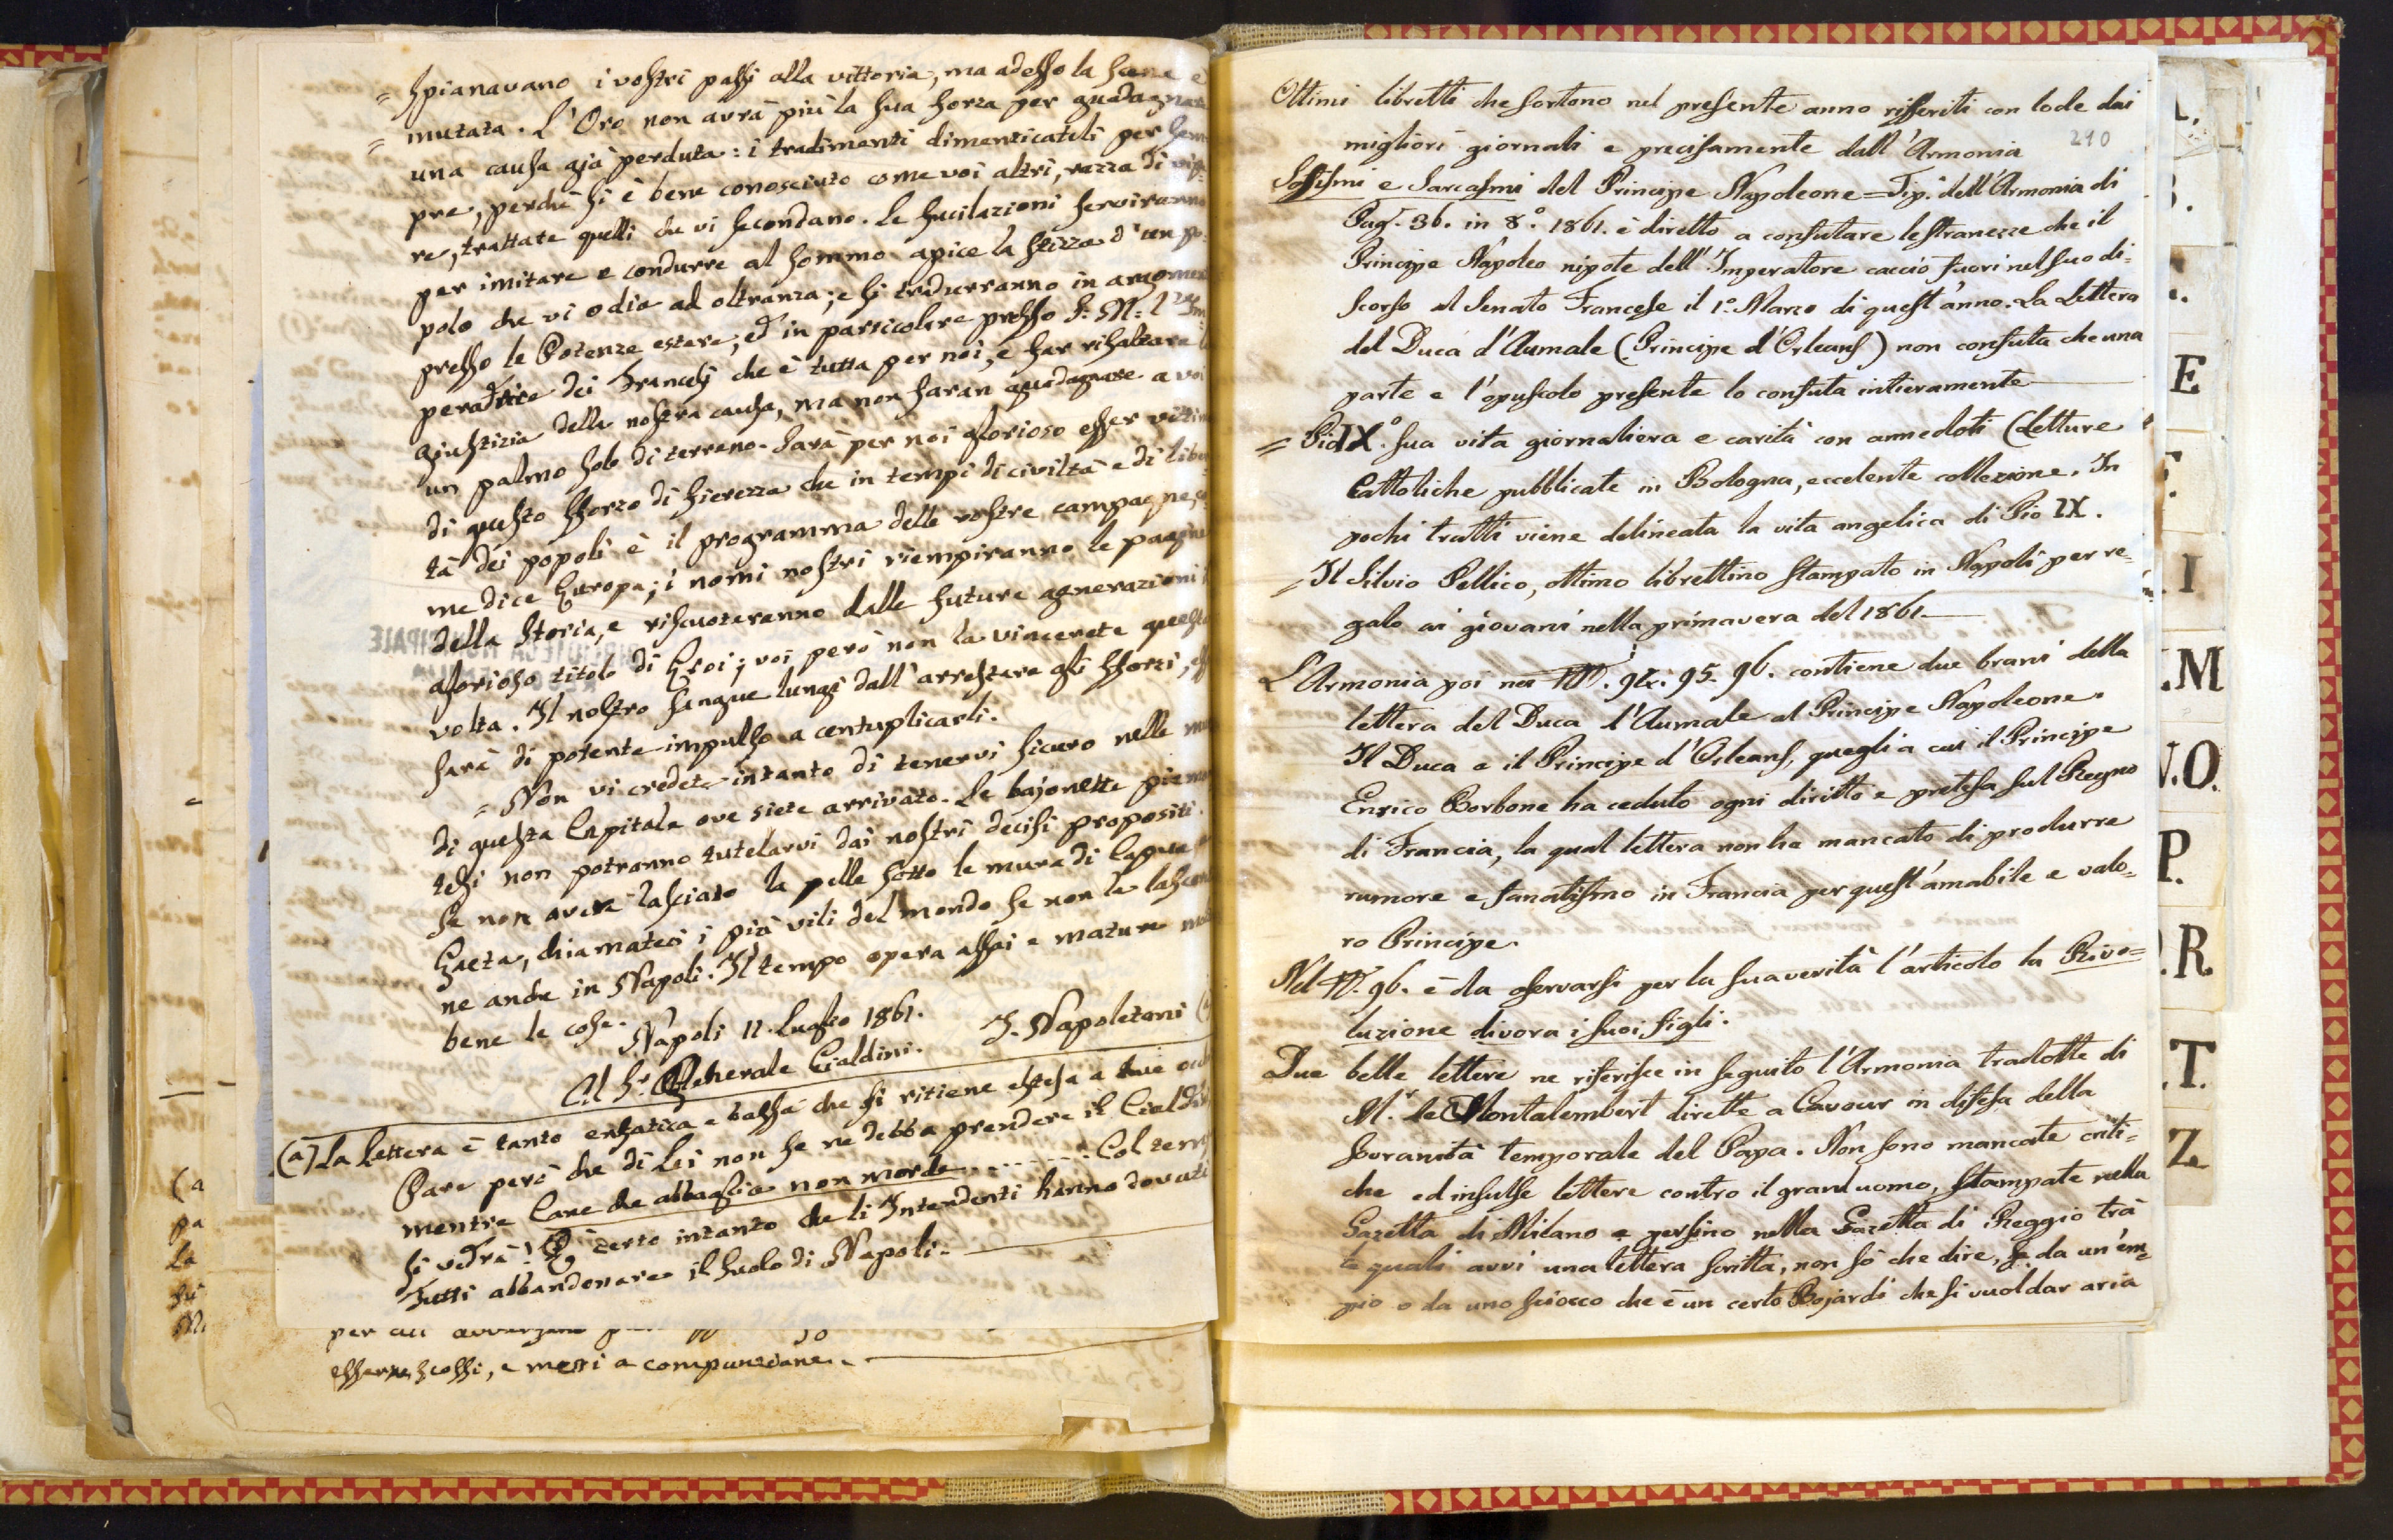 = spianavano i vostri passi alla vittoria, ma adesso la scena è
= mutata. L'Oro non avrà più la sua forza per guadagnare
una causa già perduta: i tradimenti dimenticateli per sem-
pre, perchè si è bene conosciuto come voi altri, razza di
re, trattate quelli che vi secondano. Le fucilazioni serviranno
per imitare e condurre al sommo apice la stizza d'un po-
polo che vi odia ad oltranza; e si tradurranno in
presso le Potenze estere, ed in particolare presso S: M: l'Im-
peratrice dei Francesj che è tutta per noi, e far risaltare la
giustizia della nostra causa, ma non faran guadagnare a voi
un palmo solo di terreno. Sarà per noi glorioso esser vittime
di questo sforzo di fierezza che in tempi di civiltà e di liber-
tà dei popoli è il programma delle vostre campagne, co-
me dice Europa; i nomi nostri riempiranno le pagine
della Storia, e riscuoteranno dalle future generazioni il
glorioso titolo di Eroi; voi però non la vincerete questa
volta. Il nostro sangue lungi dall'arrestare gli sforzi,
sarà di potente impulso a centuplicarli.
= Non vi credete intanto di tenervi sicuro nelle mura
di questa Capitale ove siete arrivato. Le bajonette piemon-
tesi non potranno tutelarvi dai nostri decisi propositi.
Se non avete lasciato la pelle sotto le mura di Capua
Gaeta, chiamateci i più vili del mondo se non la
ne anche in Napoli. Il tempo opera assai e matura
bene le cose.
Napoli 12. Luglio 1861.
I. Napoletani (a
Al Sr. Generale Cialdini.
(a) La Lettera è tanto enfatica e bassa che si ritiene estesa a
Pare però che di Lei non se ne debba prendere il Cialdini
mentre Cane che abbaja non morde . . . . . . . Col tempo
si vedrà! È certo intanto che li Intendenti hanno dovuto
Tutti abbandonare il suolo di Napoli. -
esserne scossi, e messi a compunzione. -
Ottimi libretti che sortono nel presente anno rifferiti con lode dai
migliori giornali e precisamente dall'Armonia
210
Sofismi e Sarcasmi del Principe Napoleone = Tip. dell'Armonia di
Pag. 36. in 8.° 1861. è diretto a confutare lestranezze che il
Principe Napoleo nipote dell'Imperatore cacciò fuori nel suo di=
scorso al Senato Francese il 1.° Marzo di quest'anno. La Lettera
del Duca d'Aumale (Principe d'Orleans) non confuta che una
parte e l'opuscolo presente lo confuta intieramente
= Pio IX.° sua vita giornaliera e carità con annedoti (Letture
Cattoliche pubblicate in Bologna, eccelente collezione. In
pochi tratti viene delineata la vita angelica di Pio IX.
= Il Silvio Pellico, ottimo librettino stampato in Napoli per re=
galo ai giovani nella primavera del 1861.
L'Armonia poi nei N. 94. 95. 96. contiene due brani della
lettera del Duca d'Aumale al Principe Napoleone.
Il Duca e il Principe d'Orleans, quegli a cui il Principe
Enrico Borbone ha ceduto ogni diritto e pretesa sul Regno
di Francia, la qual lettera non ha mancato di produrre
rumore e fanatismo in Francia per quest'amabile e valo=
ro Principe.
Nel N. 96. è da osservarsi per la sua verità l'articolo la Rivo=
luzione divora i suoi figli.
Due belle lettere ne riferisce in seguito l'Armonia tradotte di
M.r le Montalembert dirette a Cavour in difesa della
Sovranità temporale del Papa. Non sono mancate criti=
che ed insulse lettere contro il grand uomo, stampate nella
Gazetta di Milano e persino nella Gazetta di Reggio trà
le quali avvi una lettera scritta, non sò che dire, se da un'em=
pio o da uno sciocco che è un certo Bojardi che si vuol dar aria
E
I
.M
.O.
P.
.R
.T.
Z